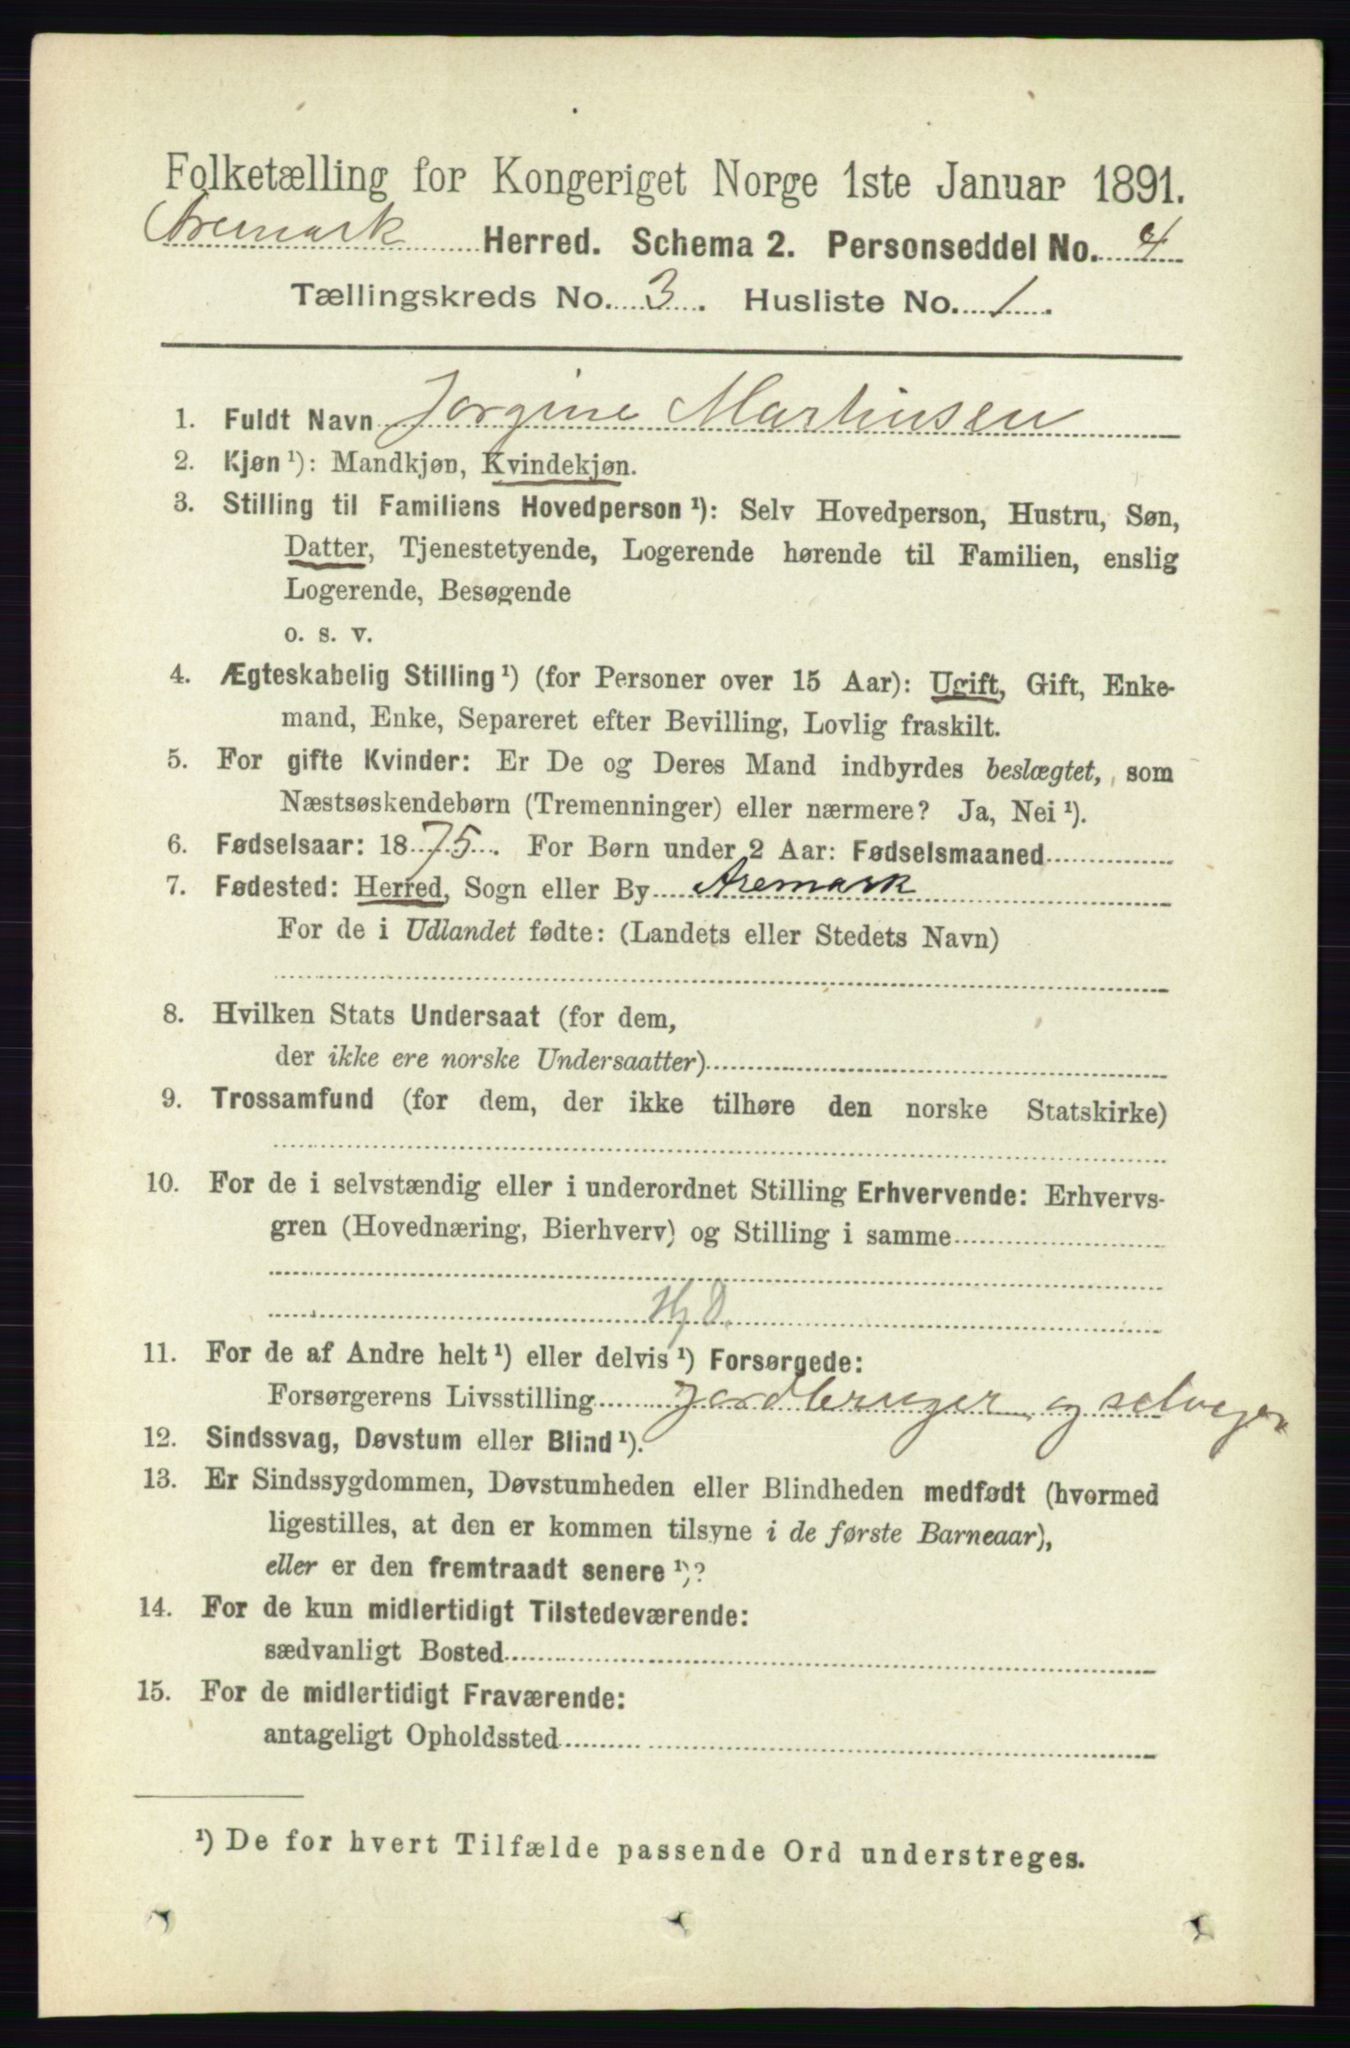 Folketælling for Kongeriget Norge 1ste Januar 1891.
Aremark Herred. Schema 2. Personseddel No. 4
Tællingskreds No. 3. Husliste No. 1.
1. Fuldt Navn Jorgine Martinsen
2. Kjøn ¹): Mandkjøn, Kvindekjøn.
3. Stilling til Familiens Hovedperson ¹): Selv Hovedperson, Hustru, Søn,
Datter, Tjenestetyende, Logerende hørende til Familien, enslig
Logerende, Besøgende
o. s. v.
4. Ægteskabelig Stilling ¹) (for Personer over 15 Aar): Ugift, Gift, Enke-
mand, Enke, Separeret efter Bevilling, Lovlig fraskilt.
5. For gifte Kvinder: Er De og Deres Mand indbyrdes beslægtet, som
Næstsøskendebørn (Tremenninger) eller nærmere? Ja, Nei ¹).
6. Fødselsaar: 1875. For Børn under 2 Aar: Fødselsmaaned
7. Fødested: Herred, Sogn eller By Aremark
For de i Udlandet fødte: (Landets eller Stedets Navn)
8. Hvilken Stats Undersaat (for dem,
der ikke ere norske Undersaatter)
9. Trossamfund (for dem, der ikke tilhøre den norske Statskirke)
10. For de i selvstændig eller i underordnet Stilling Erhvervende: Erhvervs-
gren (Hovednæring, Bierhverv) og Stilling i samme
Hj. D.
11. For de af Andre helt ¹) eller delvis ¹) Forsørgede:
Forsørgerens Livsstilling Jordbruger og selveger
12. Sindssvag, Døvstum eller Blind ¹).
13. Er Sindssygdommen, Døvstumheden eller Blindheden medfødt (hvormed
ligestilles, at den er kommen tilsyne i de første Barneaar),
eller er den fremtraadt senere ¹)?
14. For de kun midlertidigt Tilstedeværende:
sædvanligt Bosted
15. For de midlertidigt Fraværende:
antageligt Opholdssted
¹) De for hvert Tilfælde passende Ord understreges.